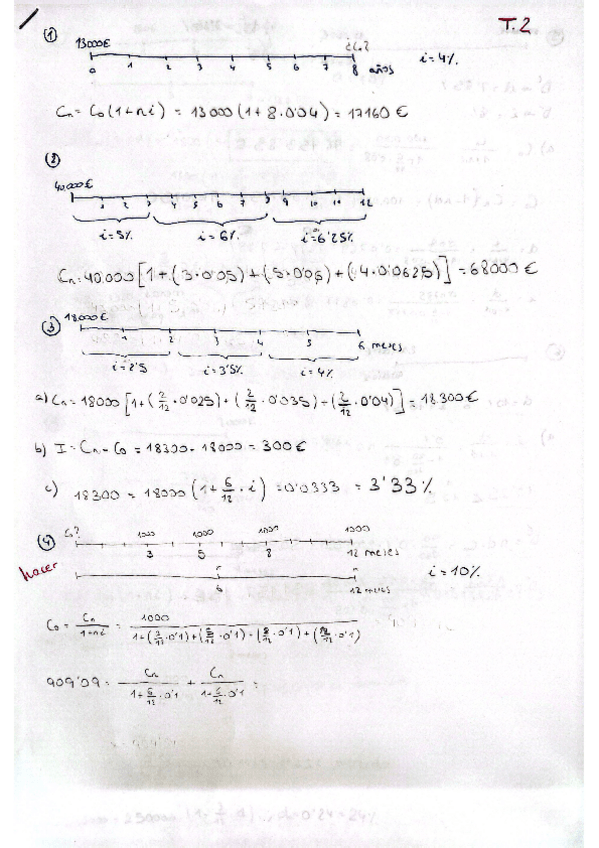 T.2
①
13000€ ¿Cn?
0 1 2 3 4 5 6 7 8 años i=4%
Cn = Co(1+ni) = 13000(1+8·0'04) = 17160 €
②
40.000€
1 2 3 4 5 6 7 8 9 10 11 12
i=5% i=6% i=6'25%
Cn=40.000[1+(3·0'05)+(5·0'06)+(4·0'0625)]=68000€
③ 18000€
1 2 3 4 5 6 meses
i=2'5 i=3'5% i=4%
a) Cn = 18000[1+(2/12·0'025)+(2/12·0'035)+(2/12·0'04)] = 18.300€
b) I = Cn - Co = 18300 - 18000 = 300€
c) 18300 = 18000(1+6/12·i) = 0'0333 = 3'33%
④ Co? 1000 1000 1000 1000
3 5 8 12 meses
hacer
6 12 meses
i=10%
Co = Cn/1+ni = 1000/1+(3/12·0'1)+(5/12·0'1)+(8/12·0'1)+(12/12·0'1)
909'09 = Cn/1+6/12·0'1 + Cn/1+6/12·0'1 =